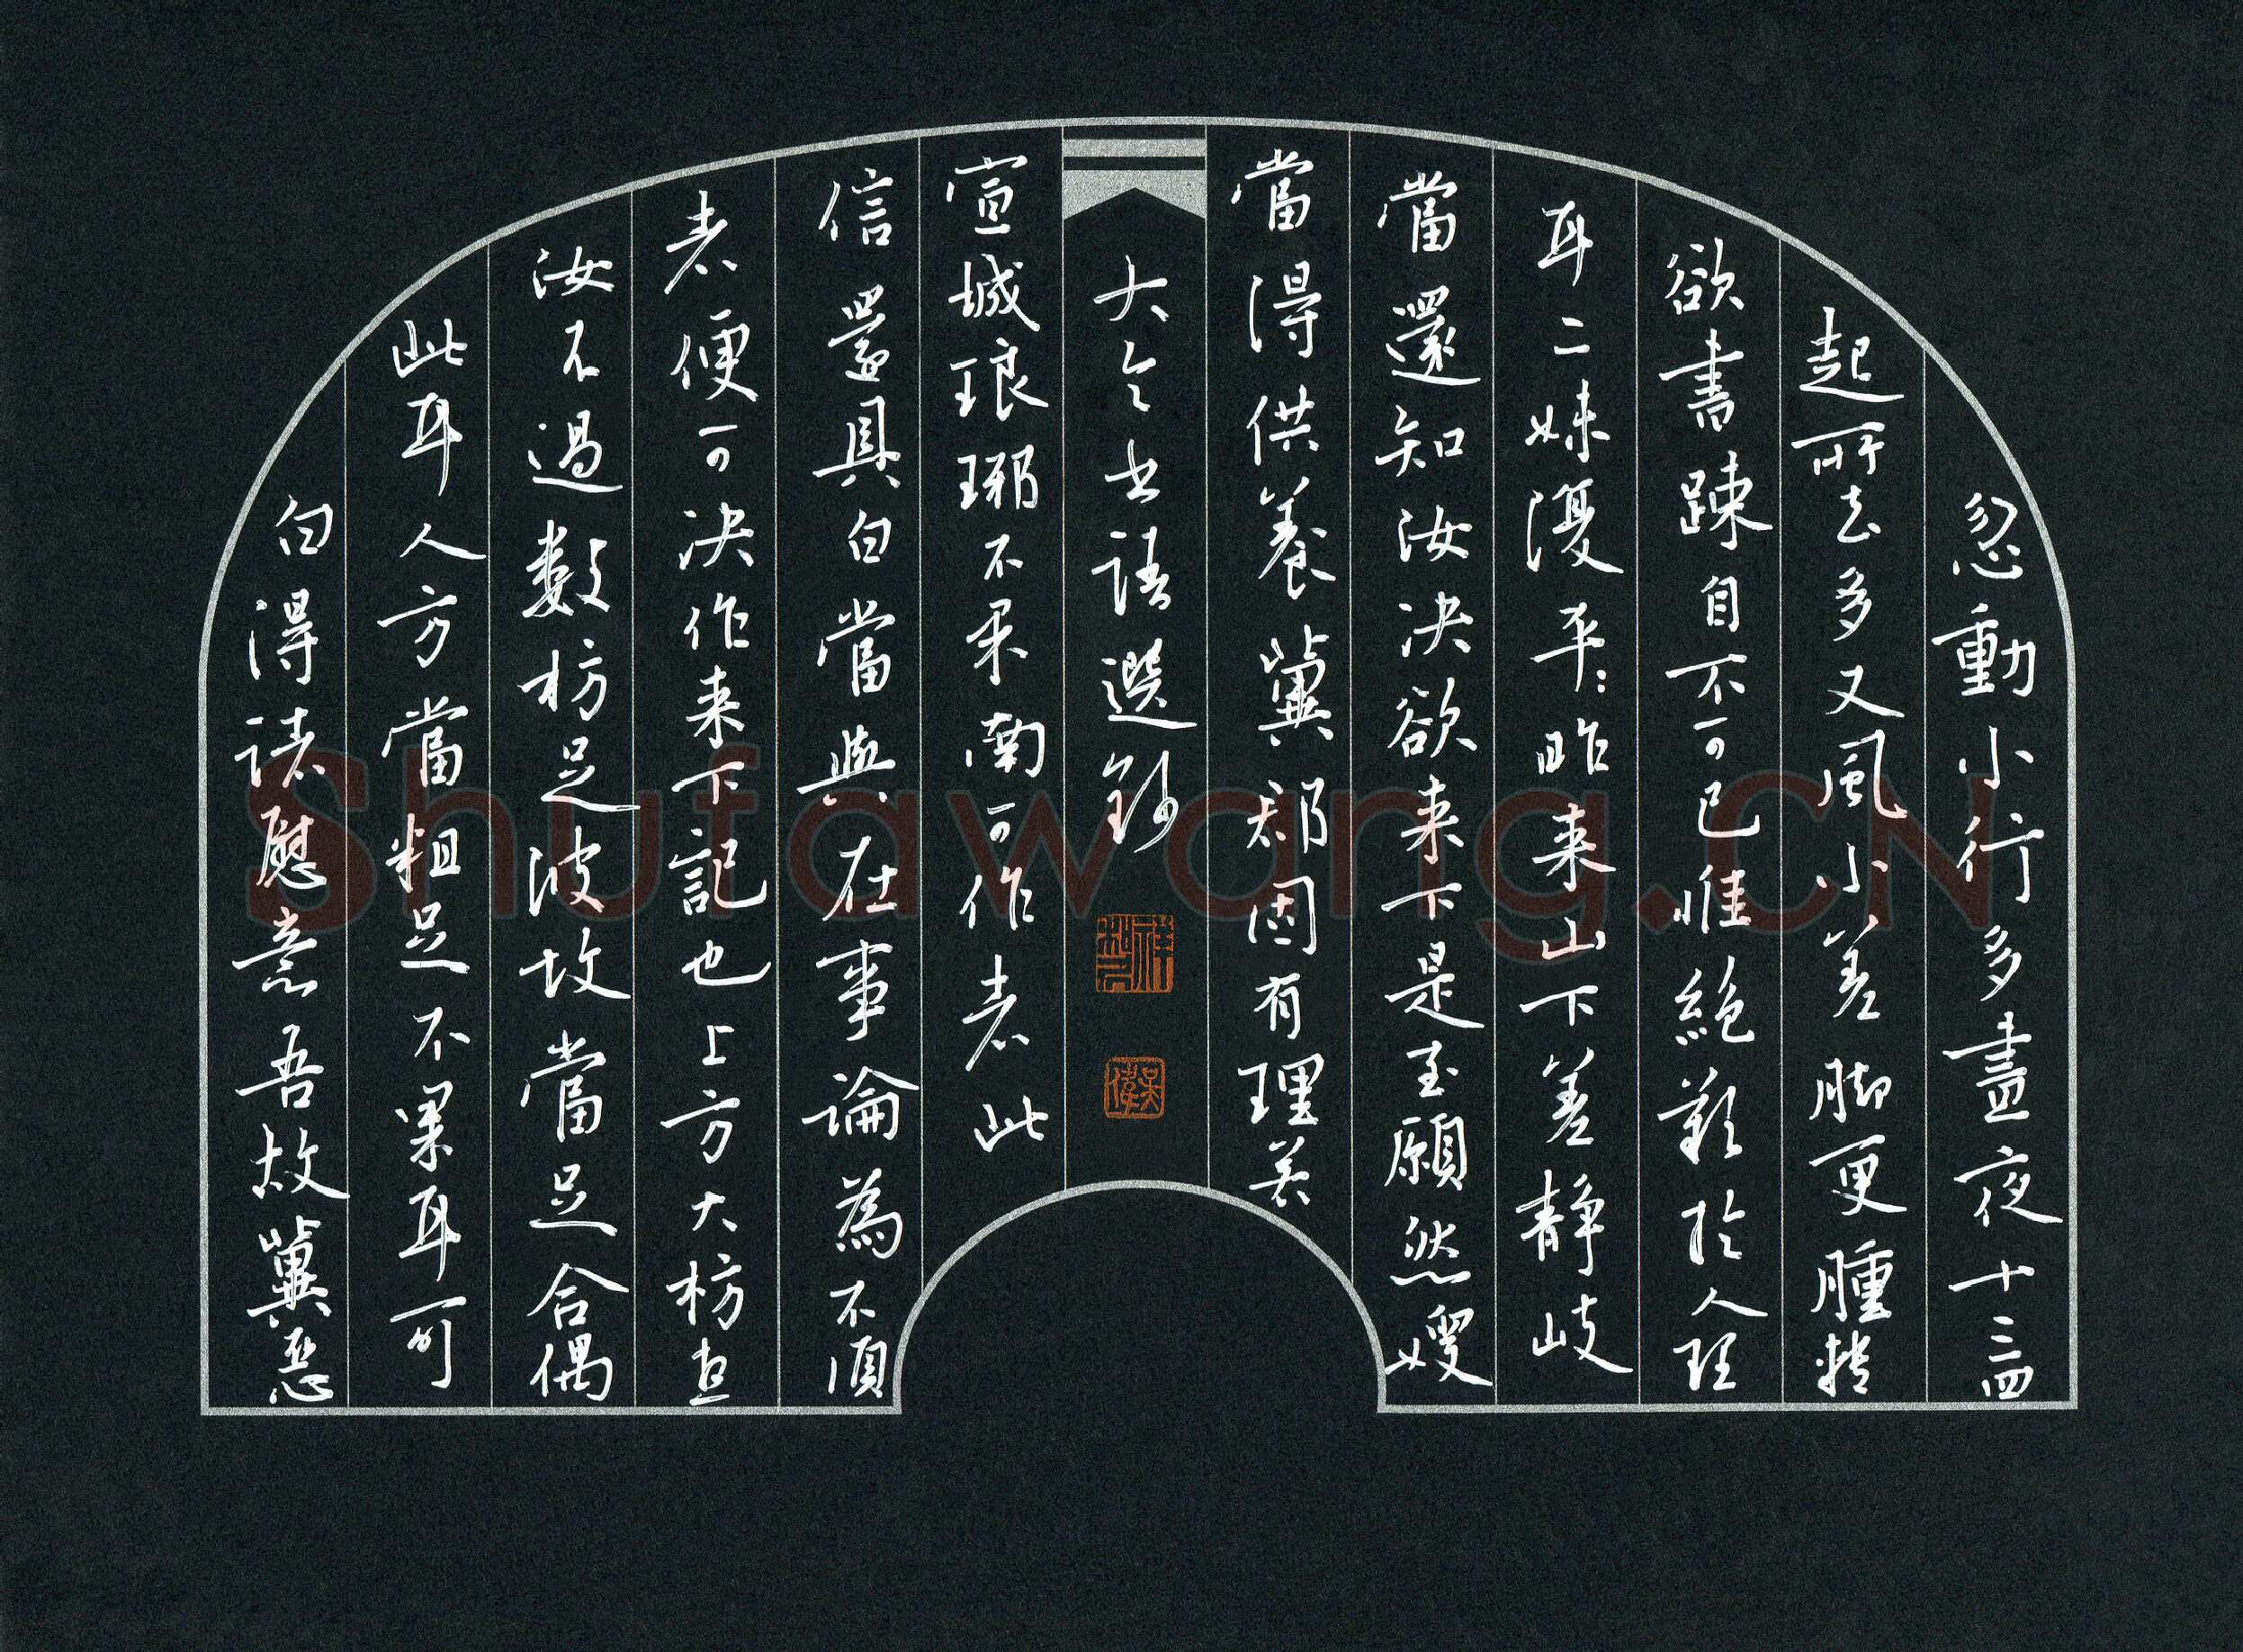 忽動小行多晝夜十三四
起所去多又風小差腳更腫
欲書疎自不可已惟絕歎於人理
耳二妹復平平昨來山下差靜岐
當還知汝決欲來下是至願然嫂
當得供養冀郄因有理
大令書語選鈔
宣城琅琊不果南可作表此
信還具白當與在事論為不須
表便可決作來下記也上方大枋
汝不過數枋足波故當足合偶
此耳人方當粗足不果耳可
白得諸慰意吾故冀惡
Shufawang.CN